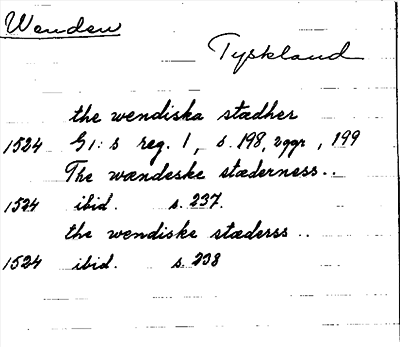 Wenden
Tyskland
the wendiska stædher
1524 G1:s reg. 1, s. 198, 2ggr, 199
The wændeske stæderness..
1524 ibid. s. 237.
the wendiske stæderss ..
1524 ibid. s. 238